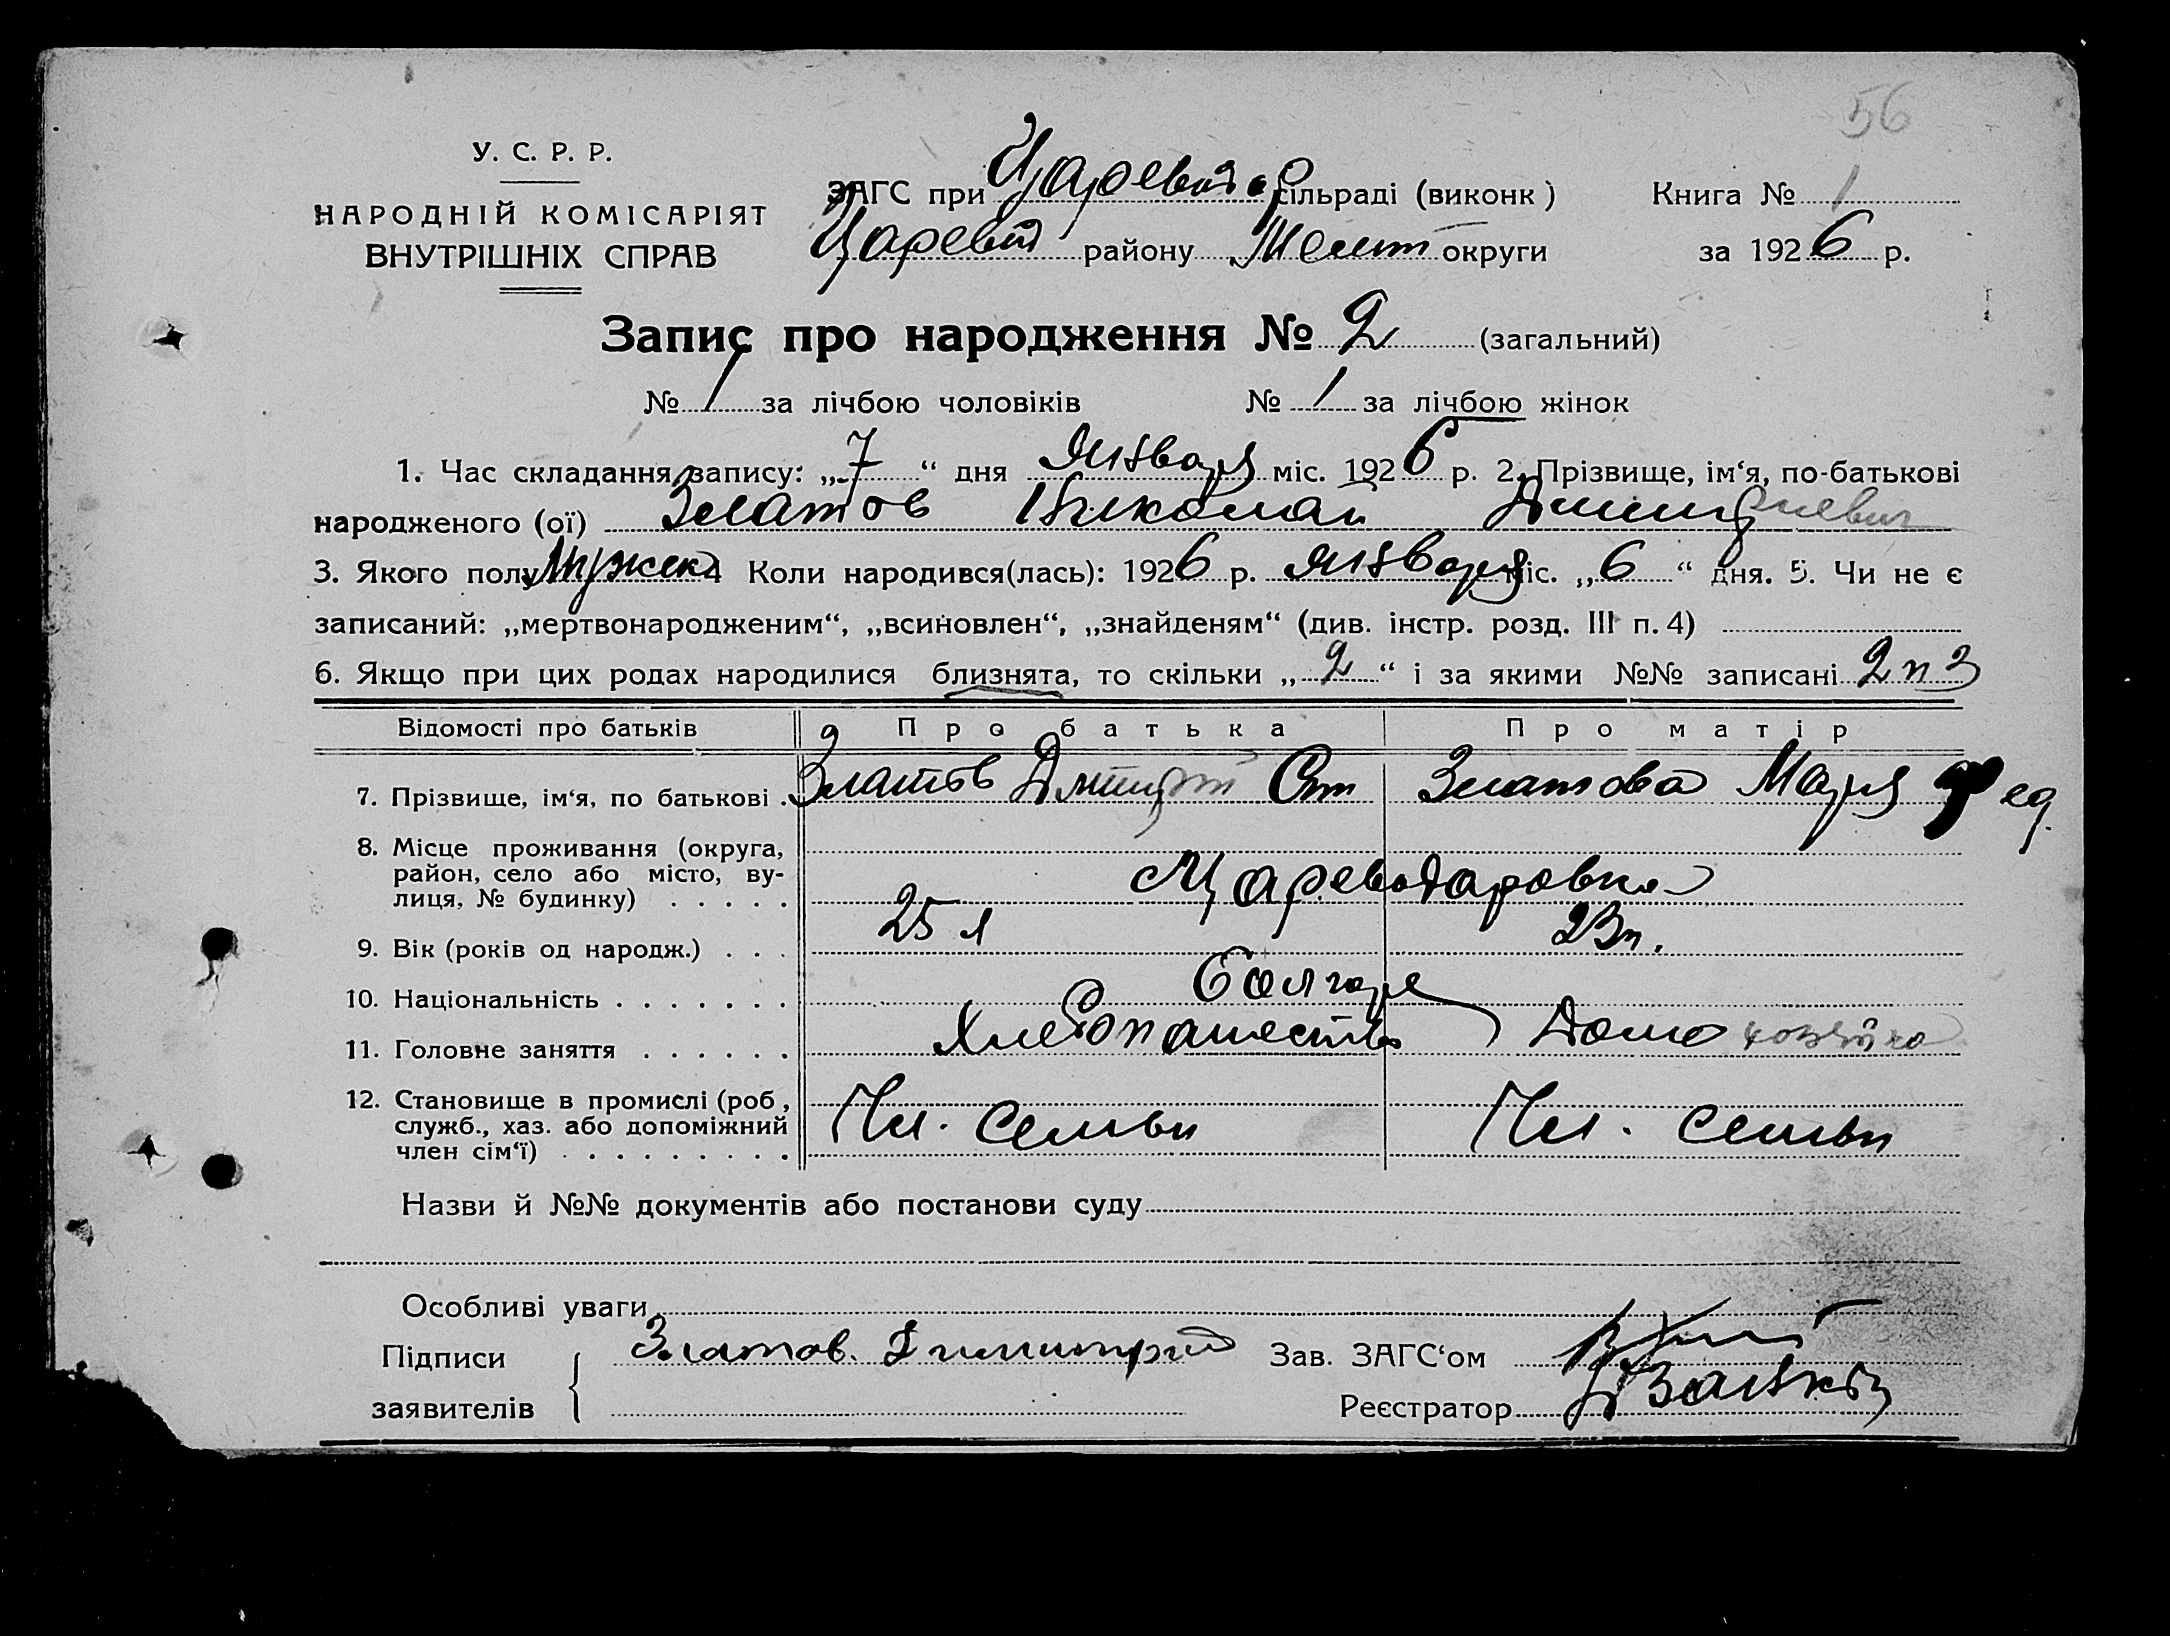 56
У. С. Р. Р.
НАРОДНІЙ КОМІСАРІЯТ
ВНУТРІШНІХ СПРАВ
ЗАГС при Царевод сільраді (виконк ) Книга № 1
Царевод району Мелит округи за 1926 р.
Запис про народження № 2 (загальний)
№ 1 за лічбою чоловіків № 1 за лічбою жінок
1. Час складання запису: „7“ дня Января міс. 1926 р. 2. Прізвище, ім‘я, по-батькові
народженого (ої) Златов Николай Дмитриевич
3. Якого полу Мужск 4 Коли народився(лась): 1926 р. Января міс. „6“ дня. 5. Чи не є
записаний: „мертвонародженим“, „всиновлен“, „знайденям“ (див. інстр. розд. III п. 4)
6. Якщо при цих родах народилися близнята, то скільки „2“ і за якими №№ записані 2 и 3
Відомості про батьків Про батька Про матір
7. Прізвище, ім‘я, по батькові . Златов Дмитрий Ст Златова Мария Фед.
8. Місце проживання (округа,
район, село або місто, ву-
лиця, № будинку) . . . . . Цареводаровка
9. Вік (років од народж.) . . . 25 л 23 л.
10. Національність . . . . . . . болгаре
11. Головне заняття . . . . . . Хлебопашество Домохозяйка
12. Становище в промислі (роб ,
служб., хаз. або допоміжний
член сім‘ї) . . . . . . . . . Чл. семьи Чл. семьи
Назви й №№ документів або постанови суду
Особливі уваги
Підписи Златов. Димитрий Зав. ЗАГС‘ом
заявителів Реєстратор